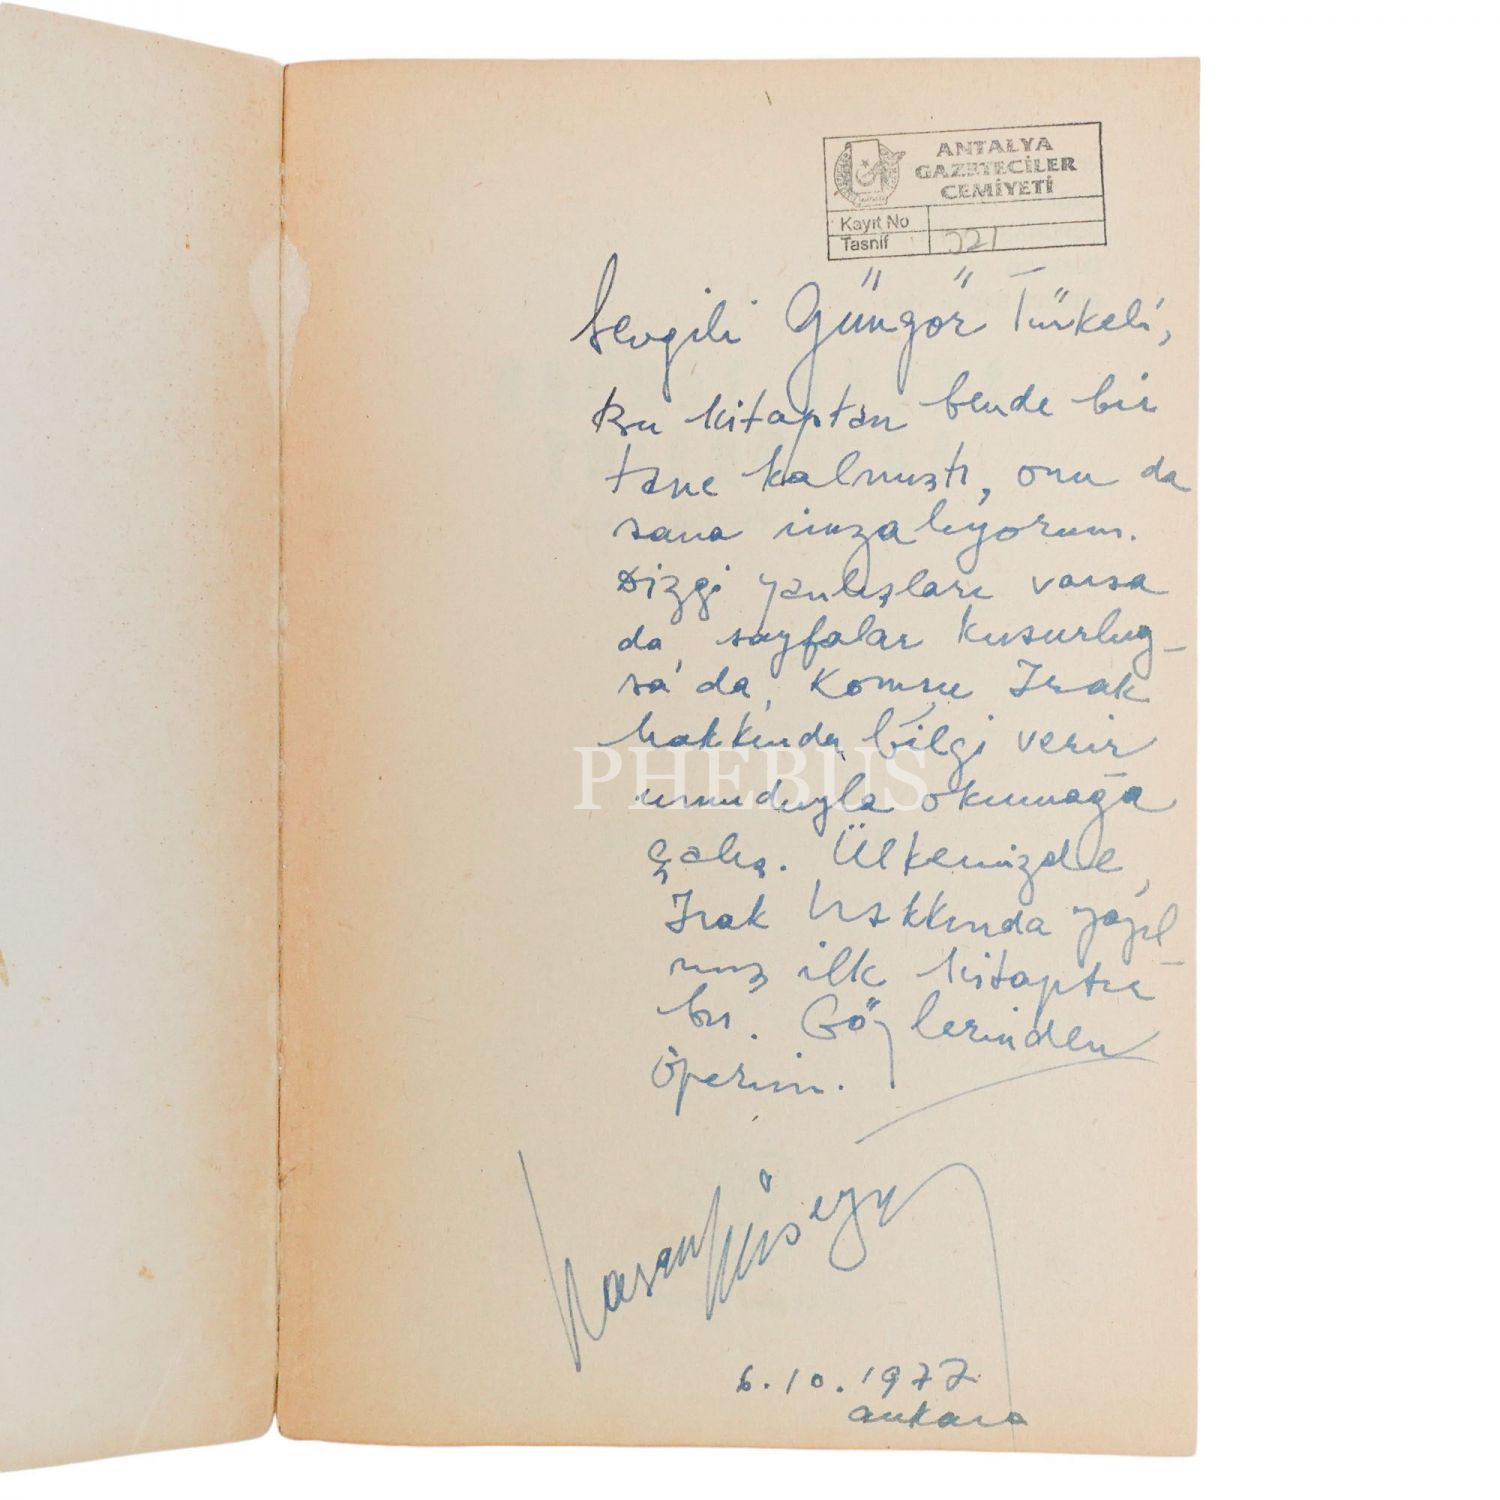 ANTALYA
GAZETECİLER
CEMİYETİ
Kayıt No
Tasnif 321
Sevgili Güngör Türkeli,
Bu kitaptan bende bir
tane kalmıştı, onu da
sana imzalıyorum.
Dizgi yanlışları varsa
da, sayfalar kusurluy-
sa da, komşu Irak
hakkında bilgi verir
umuduyla okumağa
çalış. Ülkemizde,
Irak hakkında yazıl-
mış ilk kitaptır
bu. Gözlerinden
öperim.
Hasan Hüseyin
6.10.1977
Ankara
PHEBUS